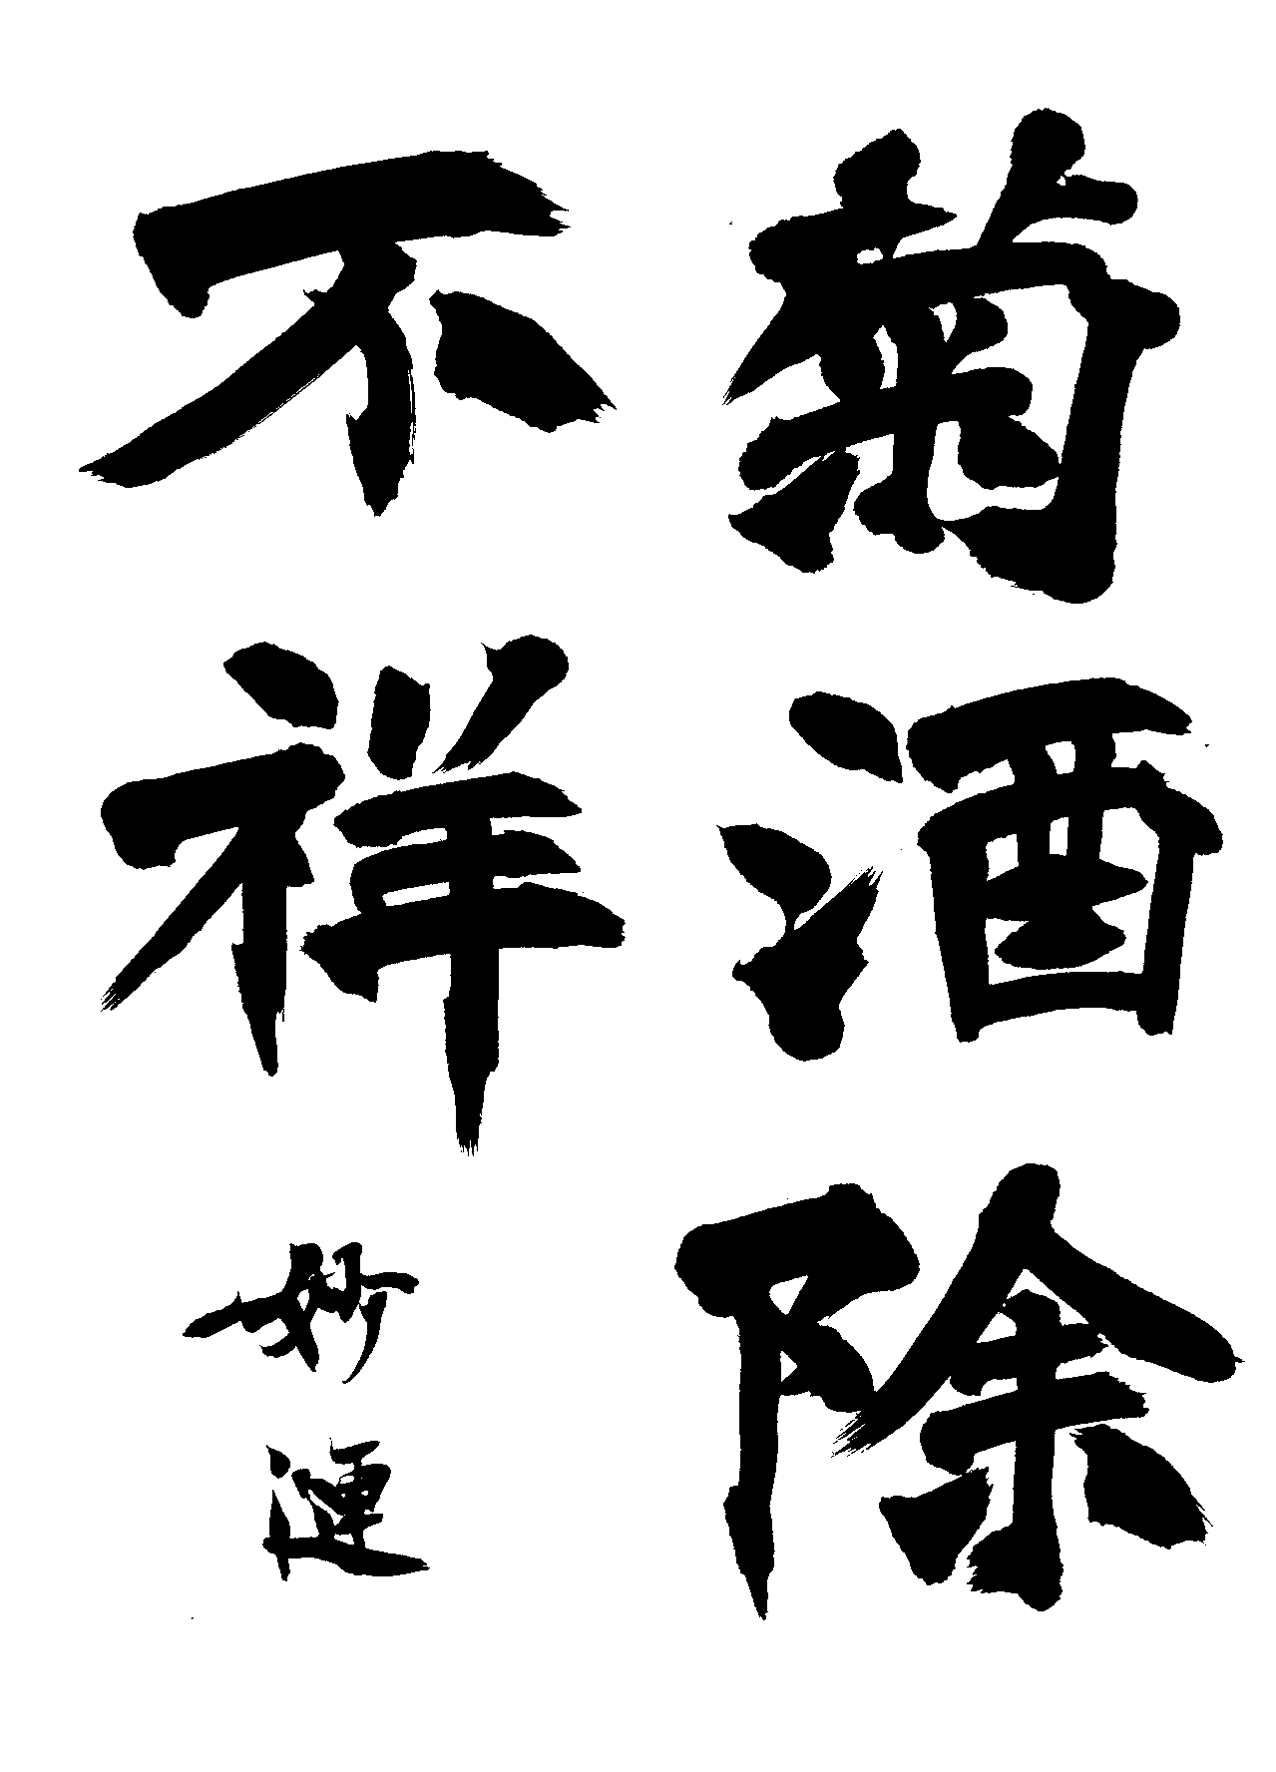 菊酒除
不祥
妙漣